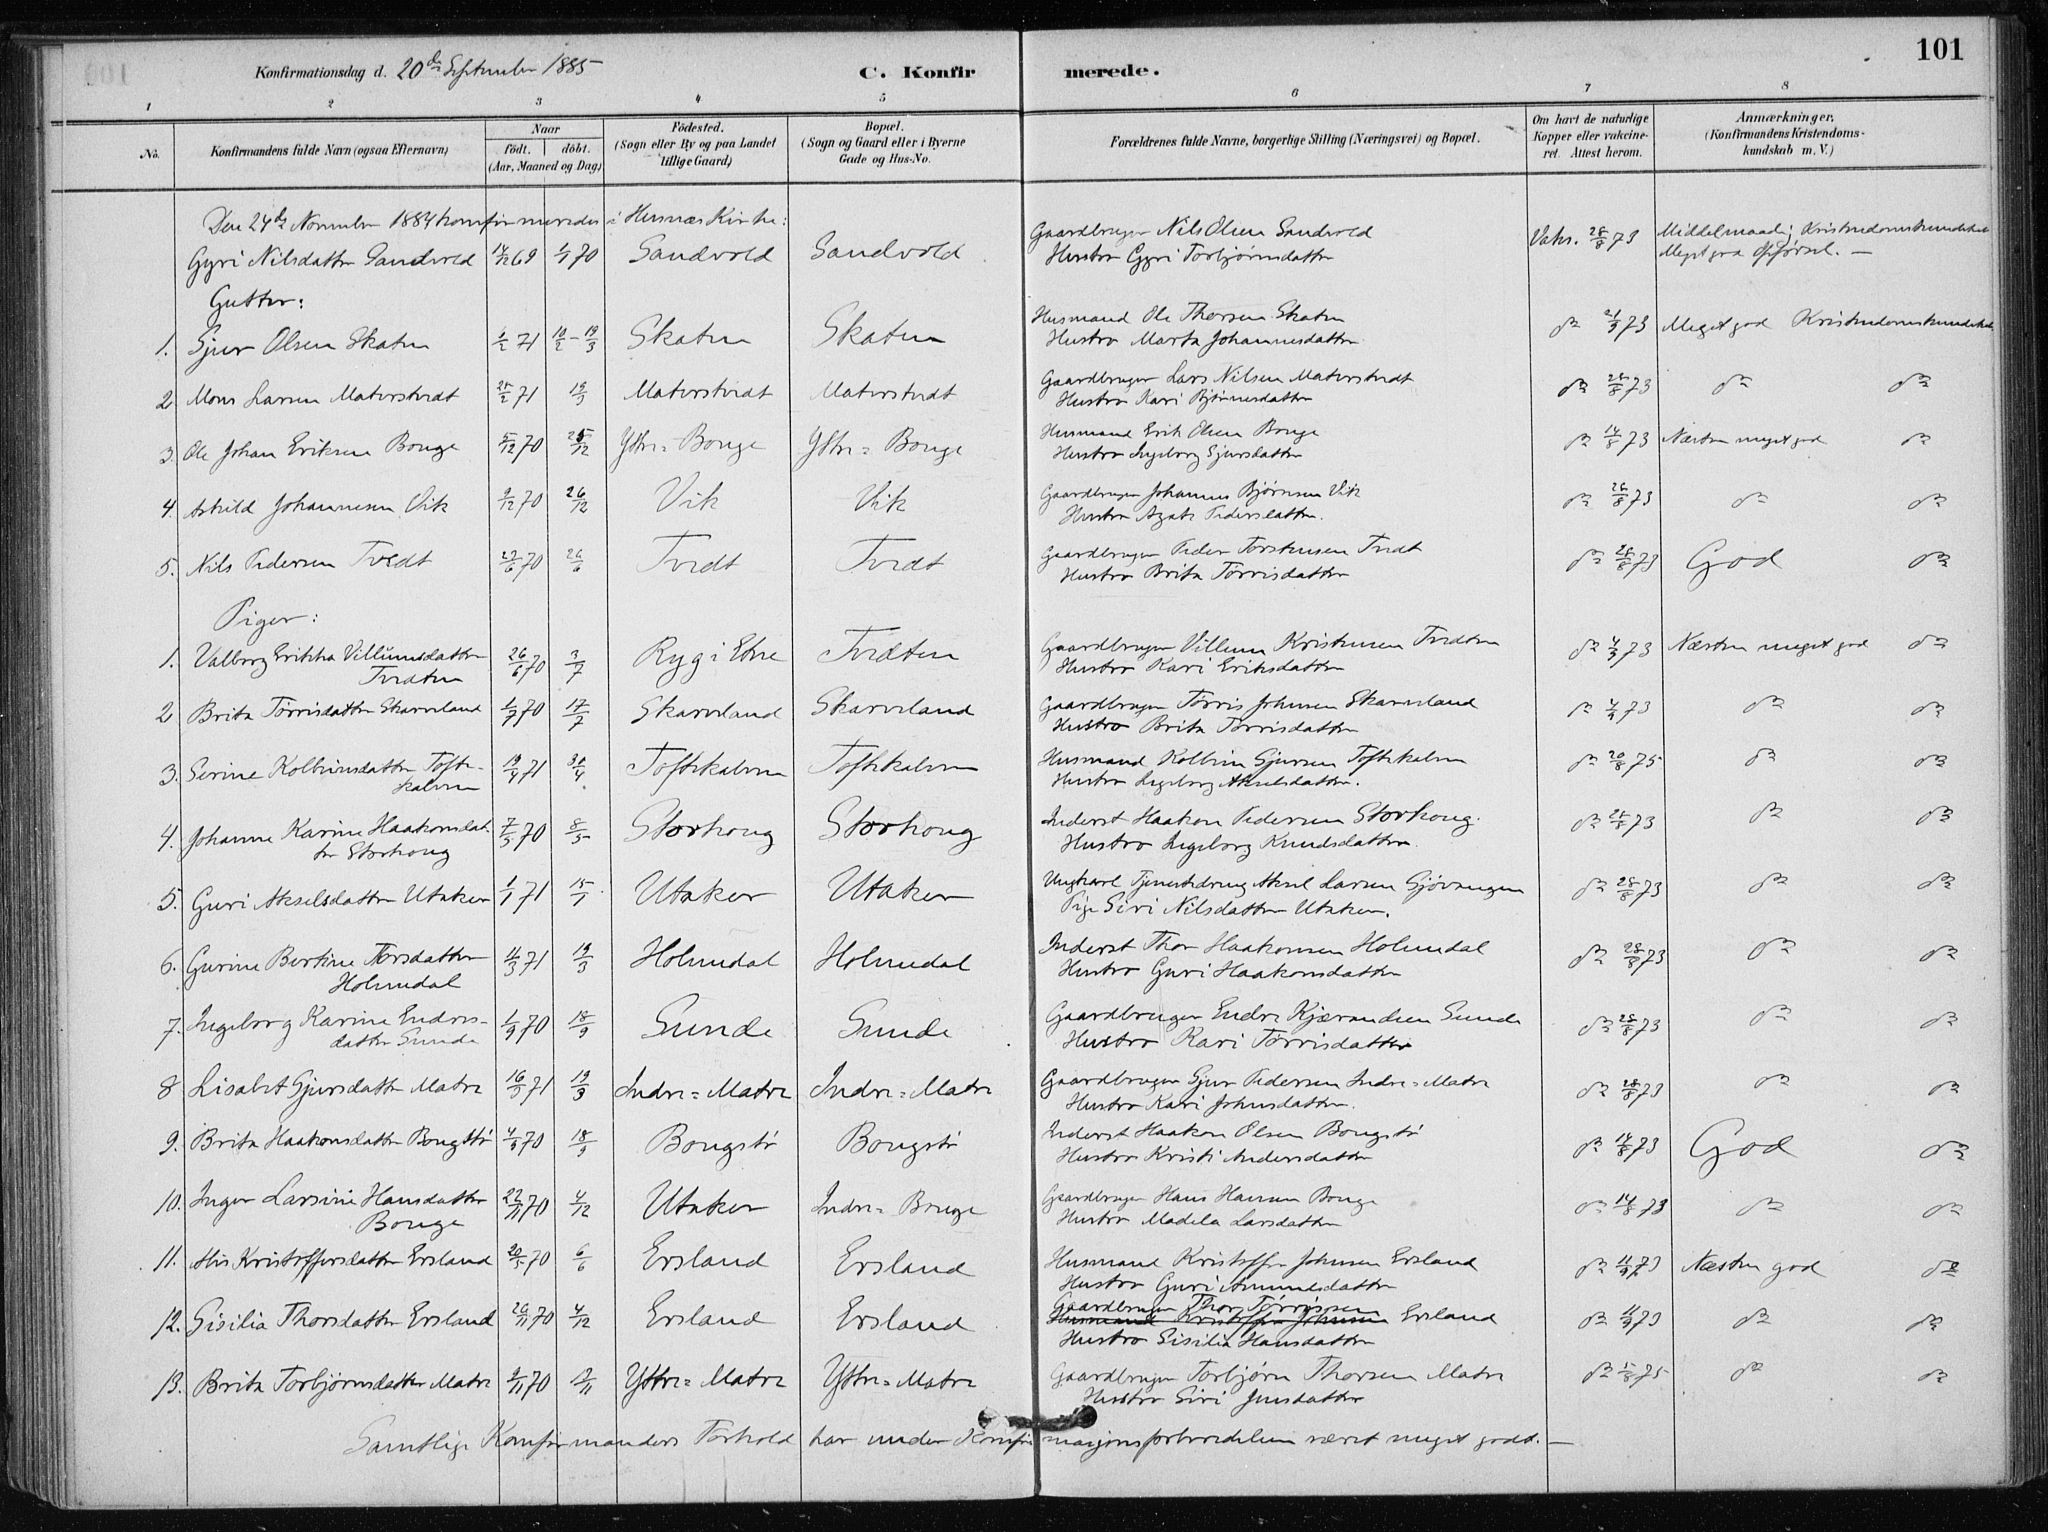 101
Konfirmationsdag d. 20de September 1885
C. Konfirmerede.
1 2 3 4 5 6 7 8
No.
Konfirmandens fulde Navn (ogsaa Efternavn)
Naar
födt. döbt.
(Aar, Maaned og Dag)
Födested.
(Sogn eller By og paa Landet
tillige Gaard)
Bopæl.
(Sogn og Gaard eller i Byerne
Gade og Hus-No.
Forældrenes fulde Navne, borgerlige Stilling (Næringsvei) og Bopæl.
Om havt de naturlige
Kopper eller vakcine-
ret. Attest herom.
Anmærkninger.
(Konfirmandens Kristendoms-
kundskab m. V.)
Den 24de November 1884 konfirmeredes i Husnæs Kirke:
Gyri Nilsdatter Sandvold 14/12 69 1/1 70 Sandvold Sandvold Gaardbruger Nils Olsen Sandvold Vaks. 28/8 73 Middelmaadig Kristendomskundskab
Hustro Gyri Torbjørnsdatter Meget god Opførsel. —
Gutter:
1. Sjur Olsen Skaten 6/2 71 10/2 - 19/3 Skaten Skaten Husmand Ole Thorsen Skaten do 21/9 73 Meget god Kristendomskundskab
Hustro Marta Johannesdatter
2. Mons Larsen Matersteдt 25/2 71 19/3 Matorstvedt Matorstvedt Gaardbruger Lars Nilsen Matorstvedt do 28/8 73 do do
Hustro Kari Bjørnesdatter
3. Ole Johan Eriksen Bouge 5/12 70 25/12 Ytre=Bouge Ytre=Bouge Husmand Erik Olsen Bouge do 14/8 73 Næsten meget god do
Hustro Ingeborg Sjursdatter
4. Askild Johannesen Vik 9/12 70 26/12 Vik Vik Gaardbruger Johannes Bjørnsen Vik do 26/8 73 do do
Hustro Agate Pedersdatter.
5. Nils Pedersen Tvedt 27/6 70 26/6 Tvedt Tvedt Gaardbruger Peder Torstensen Tvedt do 28/8 73 God do
Hustro Brita Tørrisdatter
Piger:
1. Valborg Erikka Villumsdatter 26/6 70 3/7 Ryg i Etne Tvedten Gaardbruger Villum Kristensen Tvedten do 4/9 73 Næsten meget god do
Tvedten Hustro Kari Eriksdatter
2 Brita Tørrisdatter Skarveland 1/7 70 17/7 Skarveland Skarveland Gaardbruger Tørris Johnsen Skarveland do 4/9 73 do do
Hustro Brita Tørrisdatter
3. Serine Kolbeinsdatter Tofte- 19/4 71 30/4 Toftekalven Toftekalven Husmand Kolbein Sjursen Toftekalven do 20/8 75 do do
kalven Hustro Ingeborg Akselsdatter.
4. Johanne Karine Haakonsdat- 7/5 70 8/5 Storhoug Storhoug Inderst Haakon Pedersen Storhoug. do 28/8 73 do do
ter Storhoug Hustro Ingeborg Knudsdatter
5. Guri Akselsdatter Utaker 1/1 71 15/1 Utaker Utaker Ungkarl Tjenestedreng Aksel Larsen Gjøvaagen do 28/8 73 do do
Pige Siri Nilsdatter Utaker.
6. Gurine Bertine Torsdatter 4/3 71 19/3 Holmedal Holmedal Inderst Thor Haakonsen Holmedal do 28/8 73 do do
Holmedal Hustro Guri Haakonsdatter
7. Ingeborg Karine Endres- 1/9 70 18/9 Sunde Sunde Gaardbruger Endre Kjærandsen Sunde do 28/8 73 do do
datter Sunde Hustro Kari Tørrisdatter
8 Lisabet Sjursdatter Matre 16/3 71 19/3 Indre=Matre Indre=Matre Gaardbruger Sjur Pedersen Indre=Matre do 28/8 73 do do
Hustro Kari Johnsdatter.
9. Brita Haakonsdatter Bougstø 4/9 70 18/9 Bougstø Bougstø Inderst Haakon Olsen Bougstø do 14/8 73 God do
Hustro Kristi Andersdatter
10. Inger Larsine Hansdatter 22/11 70 4/12 Utaker Indre=Bouge Gaardbruger Hans Hansen Bouge do 14/8 73 do do
Bouge Hustro Madela Larsdatter
11. Kristoffersdatter Ersland 20/5 70 6/6 Ersland Ersland Husmand Kristoffer Johnsen Ersland do 4/9 73 Næsten god do
Hustro Guri Ammundsdatter
12. Sisilia Thorsdatter Ersland 26/11 70 4/12 Ersland Ersland Gaardbruger Thor Tørrissen
Husmand Kristoffer Johnsen Ersland do 4/9 73 do do
Hustro Sisilia Hansdatter
13. Brita Torbjørnsdatter Matre 9/11 70 13/11 Ytre=Matre Ytre=Matre Gaardbruger Torbjørn Thorsen Matre do 5/8 75 do do
Hustro Siri Jensdatter
Samtlige Konfirmanders Forhold har under Konfirmasjonsforberedelsen været meget godt. —